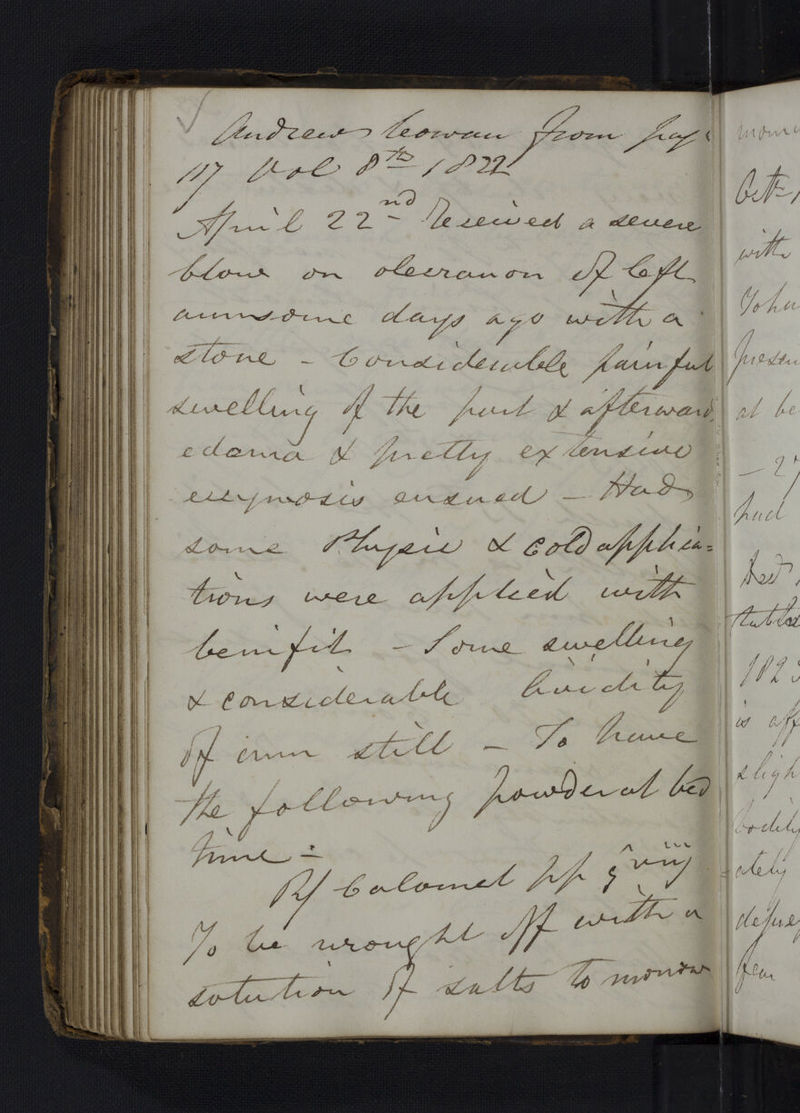 Andrew Cowan from page
117 Vol 8th 1822
April 22nd Received a severe
blow on olecranon of left
arm some days ago with a
stone - Considerable painful
swelling of the part & afterward
edema & pretty extensive
ecchymosis ensued - Had
some Physic & cold applica=
tions were applied with
benifit - Some swelling
& considerable lividity
of arm still - To have
the following powder at bed
time -
R/ Calomel pp gr viij
To be wrought off with a
solution of salts tomorrow
with
John
presen
at be
had
Bed
1823
is aff
sligh
bodily
ately